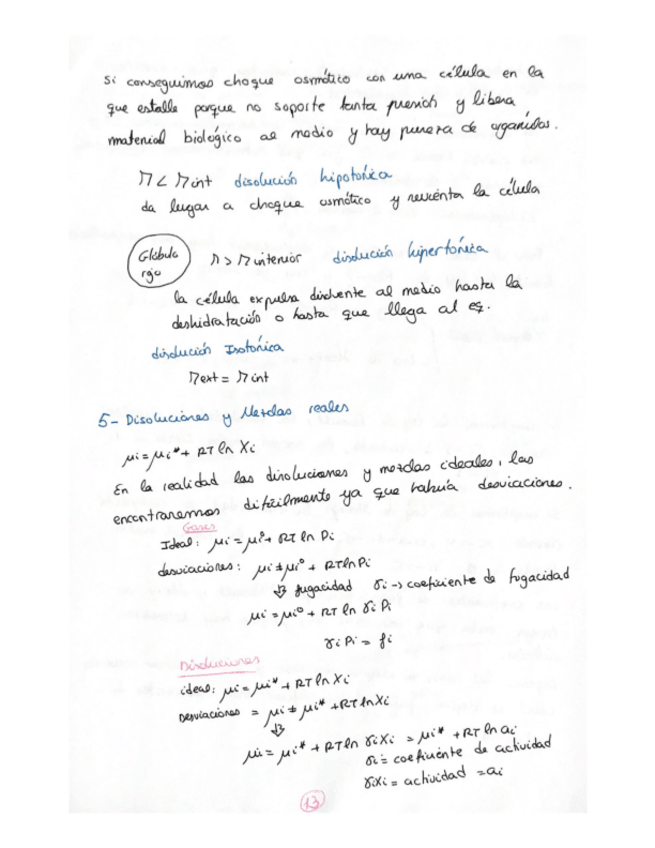 Si conseguimos choque osmótico con una célula en la
que estalle porque no soporte tanta presión y libera
material biológico al medio y hay purera de orgánulos.
Π < Π int disolución hipotónica
da lugar a choque osmótico y revienta la célula
Glóbulo
rojo
Π > Π interior disolución hipertónica
la célula expulsa disolvente al medio hasta la
deshidratación o hasta que llega al eq.
disolución Isotónica
Π ext = Π int
5- Disoluciones y Mezclas reales
μi = μi* + RT ln Xi
En la realidad las disoluciones y mezclas ideales, las
encontraremos difícilmente ya que habría desviaciones.
Gases
Ideal: μi = μi° + RT ln Pi
desviaciones: μi ≠ μi° + RT ln Pi
⇓ fugacidad γi → coeficiente de fugacidad
μi = μi° + RT ln γi Pi
γi Pi = fi
Disoluciones
ideal: μi = μi* + RT ln Xi
Desviaciones = μi ≠ μi* + RT ln Xi
⇓
μi = μi* + RT ln γi Xi = μi* + RT ln ai
γi = coeficiente de actividad
γi Xi = actividad = ai
13